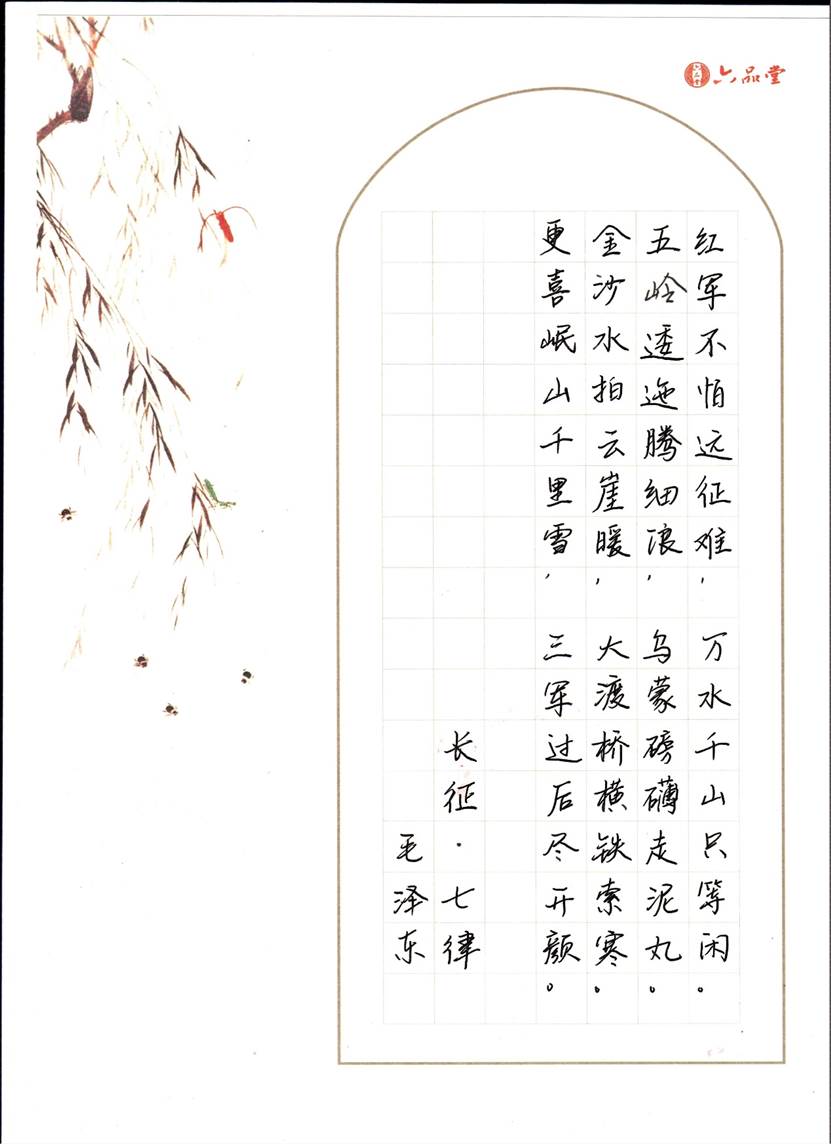 六品堂
红军不怕远征难，万水千山只等闲。
五岭逶迤腾细浪，乌蒙磅礴走泥丸。
金沙水拍云崖暖，大渡桥横铁索寒。
更喜岷山千里雪，三军过后尽开颜。
长征·七律
毛泽东